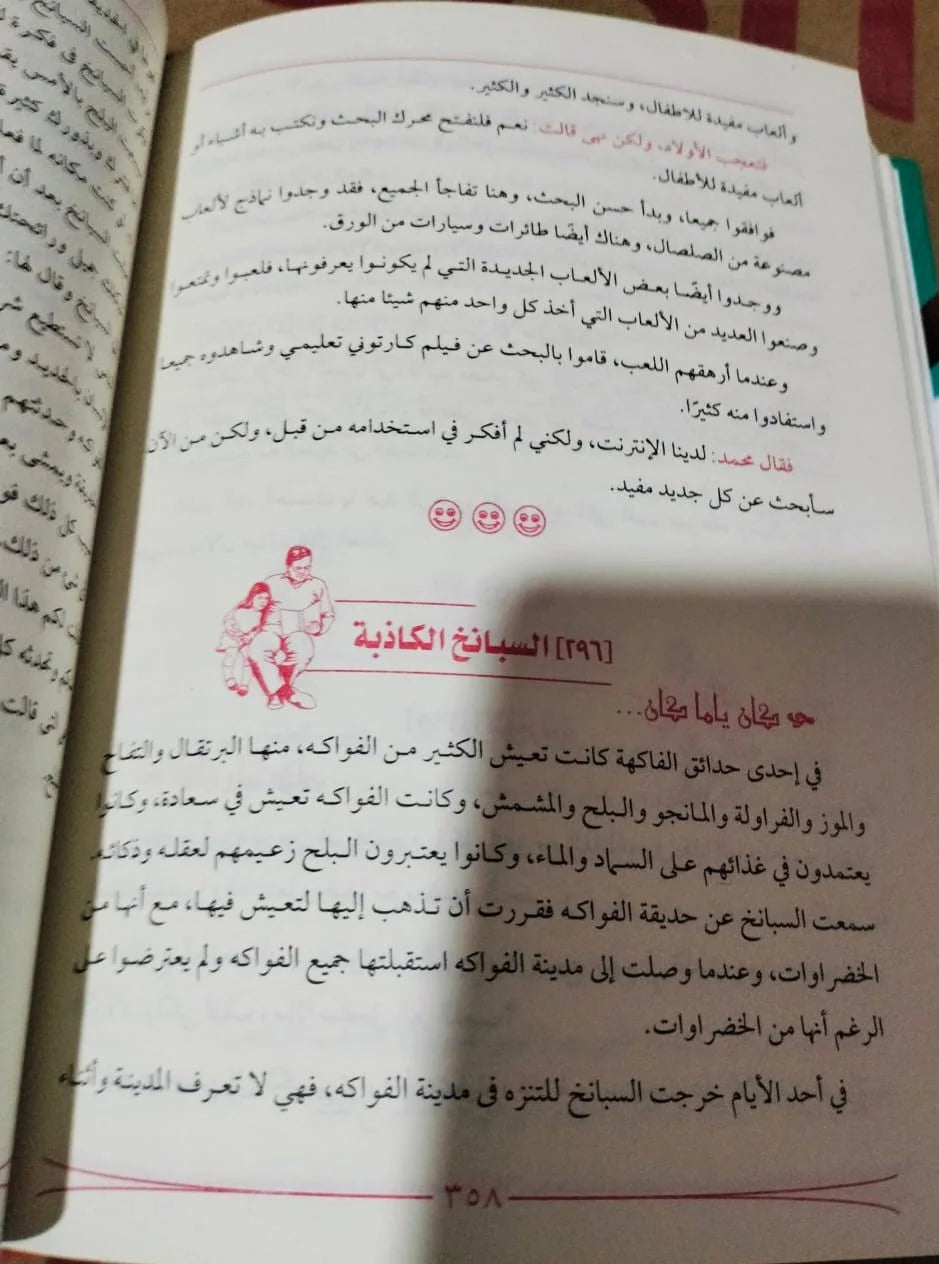 وألعاب مفيدة للأطفال، وسنجد الكثير والكثير.
فتعجب الأولاد، ولكن نهى قالت: نعم فلنفتح محرك البحث ونكتب به أشياء أو
ألعاب مفيدة للأطفال.
فوافقوا جميعا، وبدأ حسن البحث، وهنا تفاجأ الجميع، فقد وجدوا نماذج لألعاب
مصنوعة من الصلصال، وهناك أيضًا طائرات وسيارات من الورق.
ووجدوا أيضًا بعض الألعاب الجديدة التي لم يكونوا يعرفونها، فلعبوا وتمتعوا
وصنعوا العديد من الألعاب التي أخذ كل واحد منهم شيئا منها.
وعندما أرهقهم اللعب، قاموا بالبحث عن فيلم كارتوني تعليمي وشاهدوه جميعا
واستفادوا منه كثيرًا.
فقال محمد: لدينا الإنترنت، ولكني لم أفكر في استخدامه من قبل، ولكن من الآن
سأبحث عن كل جديد مفيد.
[٢٩٦] السبانخ الكاذبة
كان ياما كان...
في إحدى حدائق الفاكهة كانت تعيش الكثير من الفواكه، منها البرتقال والتفاح
والموز والفراولة والمانجو والبلح والمشمش، وكانت الفواكه تعيش في سعادة، وكانوا
يعتمدون في غذائهم على السماد والماء، وكانوا يعتبرون البلح زعيمهم لعقله وذكائه.
سمعت السبانخ عن حديقة الفواكه فقررت أن تذهب إليها لتعيش فيها، مع أنها من
الخضراوات، وعندما وصلت إلى مدينة الفواكه استقبلتها جميع الفواكه ولم يعترضوا على
الرغم أنها من الخضراوات.
في أحد الأيام خرجت السبانخ للتنزه فى مدينة الفواكه، فهي لا تعرف المدينة وأثناء
٣٥٨